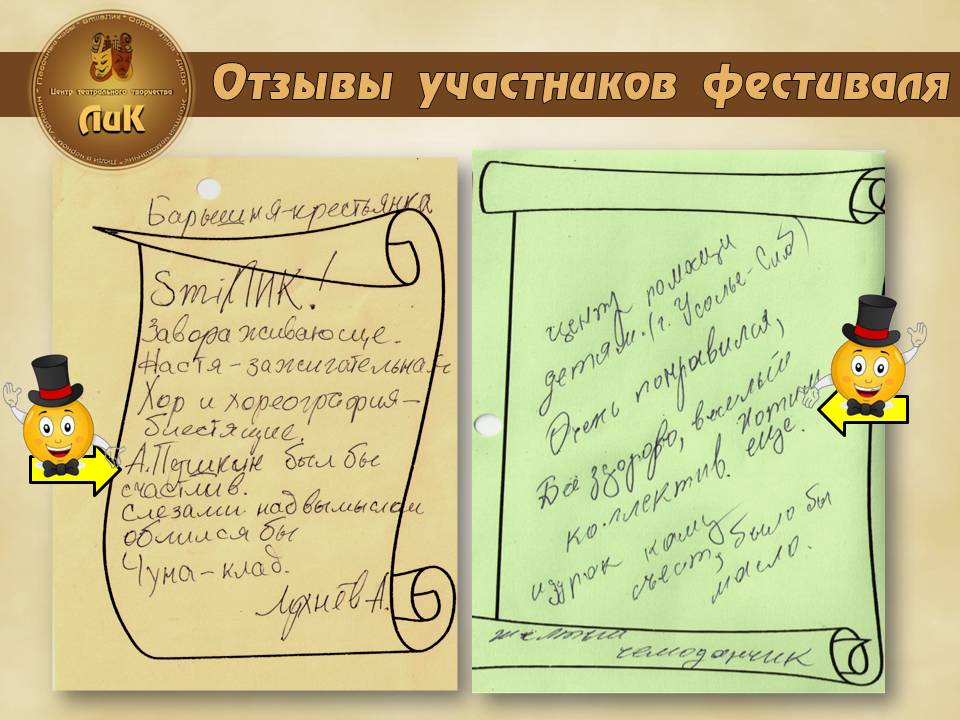 Центр театрального творчества
ЛиК
Отзывы участников фестиваля
Барышня-крестьянка
SmiЛИК!
Завораживающе.
Настя - зажигательная
Хор и хореография -
блестящие.
А.Пушкин был бы
счастлив.
слезами над вымыслом
облился бы
Чума - клад.
Лухнёв А.
центр помощи
детям. (г. Усолье-Сиб)
Очень понравился,
Всё здорово, весёлый
коллектив. Хотим
еще.
кому
съесть, было бы
мало.
желтый
чемоданчик